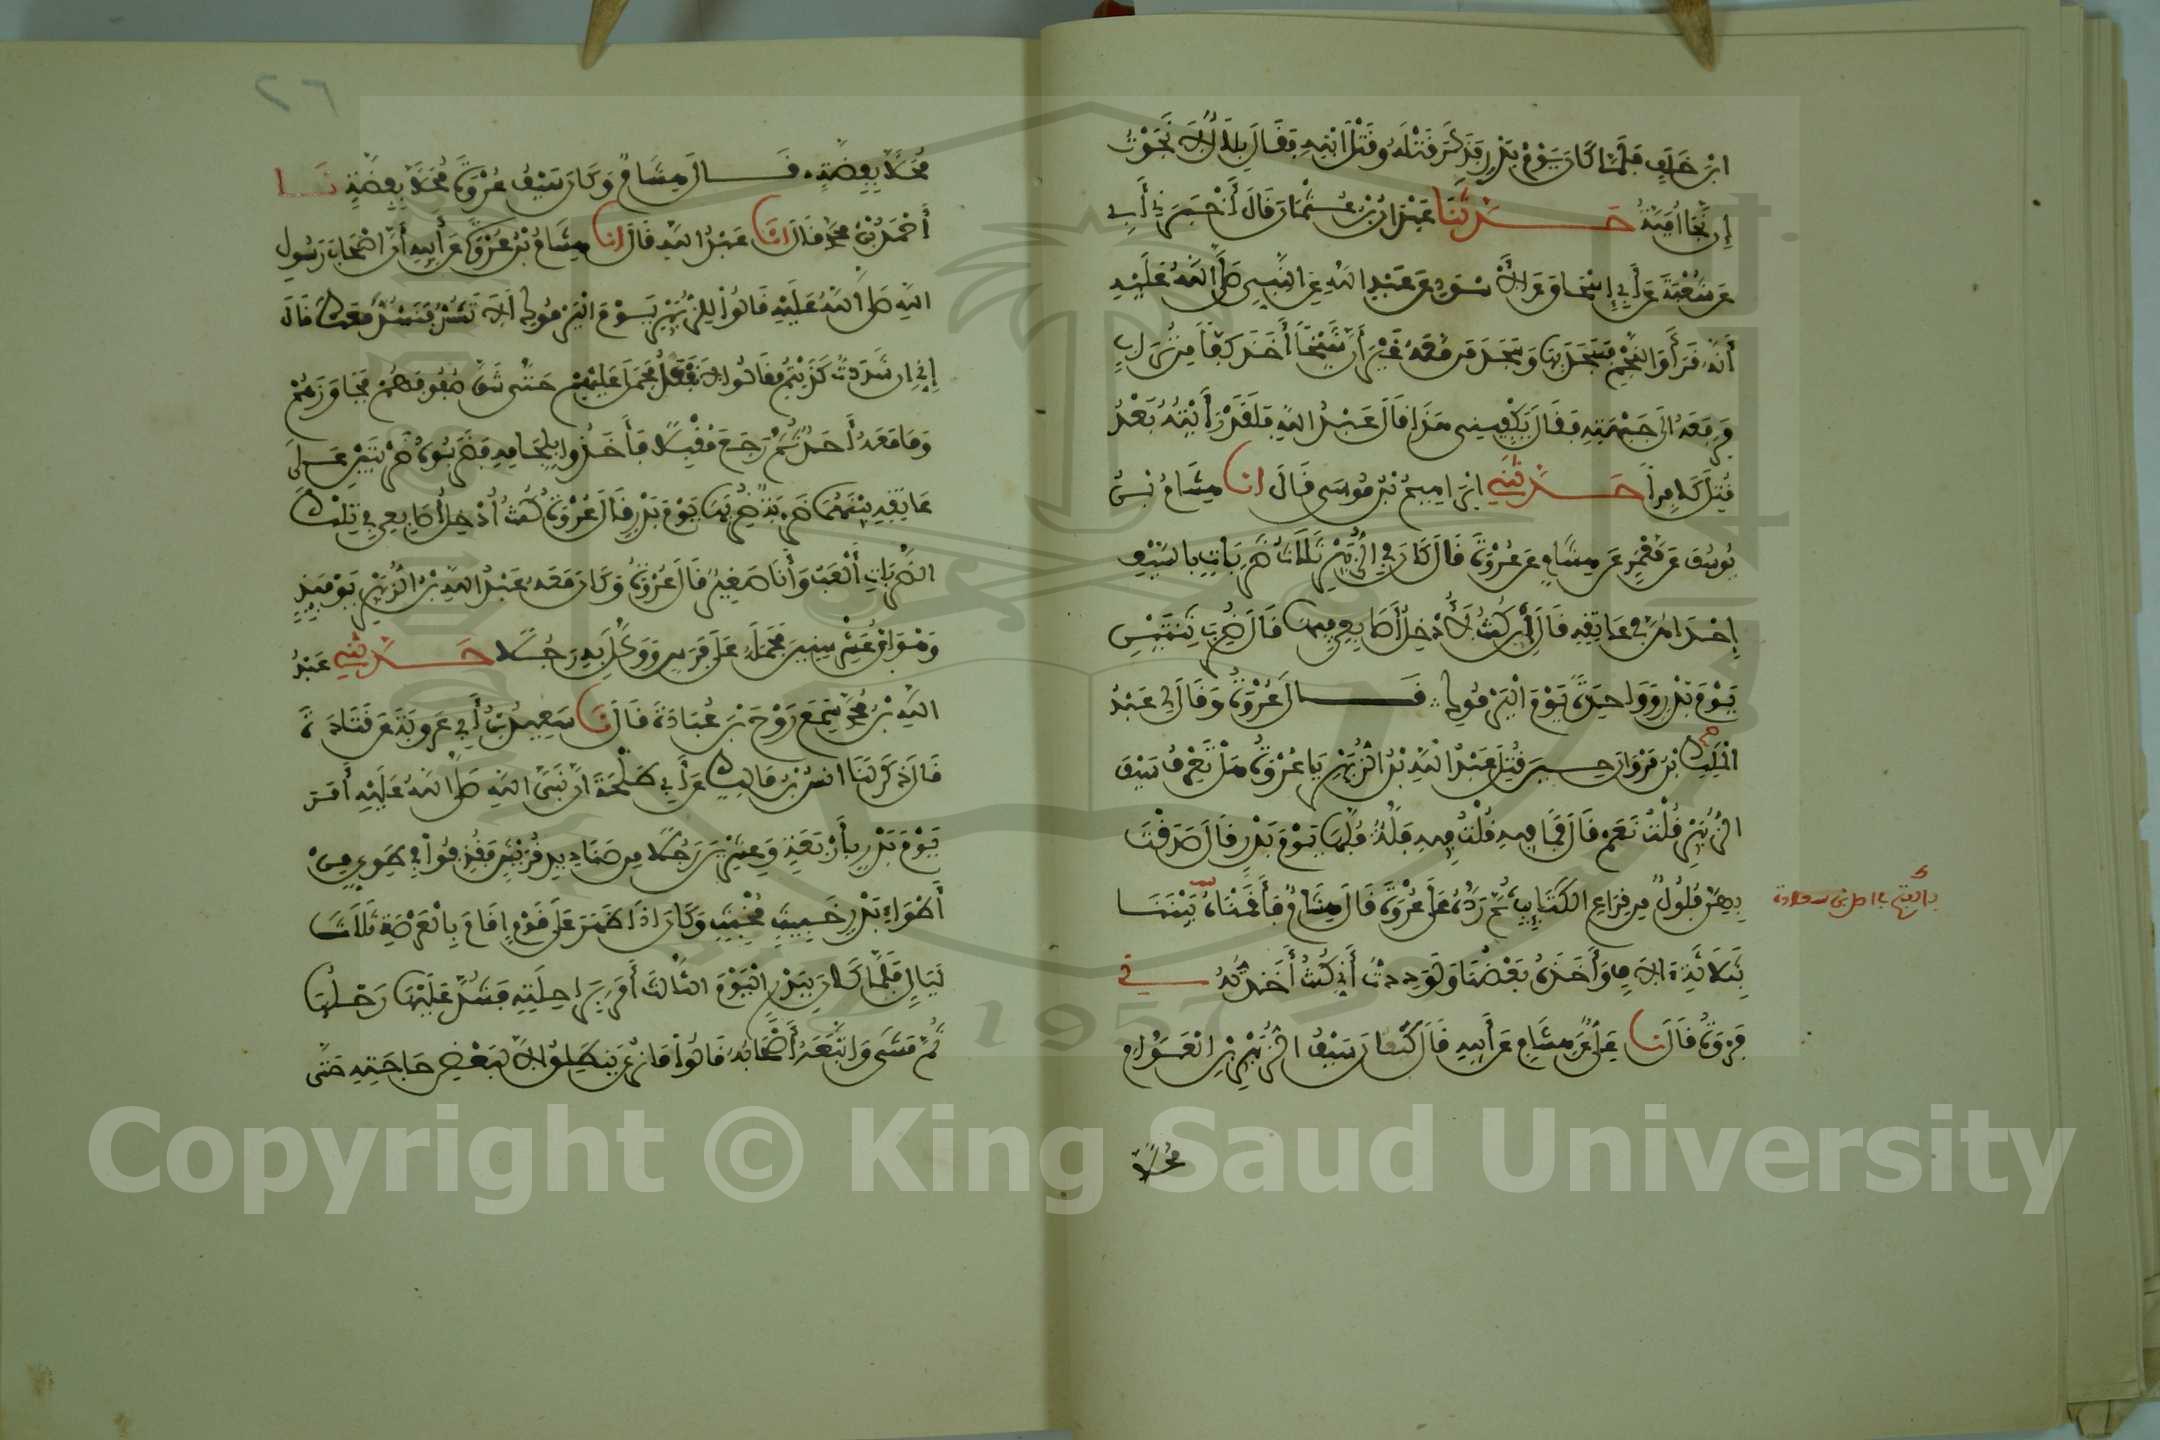 ابن خلف فلما كان يوم بدر فذكر قتله وقتل ابنه فقال بلال لا نجوت
إن نجا أمية حدثنا عبدان بن عثمان قال أخبرني أبي
عن شعبة عن أبي إسحاق عن الأسود عن عبد الله عن النبي صلى الله عليه
أنه قرأ والنجم فسجد بها وسجد من معه غير أن شيخا أخذ كفا من تراب
فرفعه إلى جبهته فقال يكفيني هذا قال عبد الله فلقد رأيته بعد
قتل كافرا حدثني ابراهيم بن موسى قال انا هشام بن
يوسف عن معمر عن هشام عن عروة قال كان في الزبير ثلاث ضربات بالسيف
إحداهن في عاتقه قال إن كنت لأدخل أصابعي فيها قال ضرب ثنتين
يوم بدر وواحدة يوم اليرموك قال عروة وقال لي عبد
الملك بن مروان حين قتل عبد الله بن الزبير يا عروة هل تعرف سيف
الزبير قلت نعم قال فما فيه قلت فيه فلة فلها يوم بدر قال صدقت
بهن فلول من قراع الكتائب ثم رده على عروة قال هشام فأقمناه بيننا
بثلاثة آلاف وأخذه بعضنا ولوددت أني كنت أخذته في
فروة قال نا علي عن هشام عن أبيه قال كان سيف الزبير بن العوام
محلا
٢٦
محلا بفضة قال هشام وكان سيف عروة محلا بفضة نا
أحمد بن محمد قال انا عبد الله قال انا هشام بن عروة عن أبيه أن اصحاب رسول
الله صلى الله عليه قالوا للزبير يوم اليرموك ألا تشد فنشد معك قال
إني إن شددت كذبتم فقالوا لا نفعل فحمل عليهم حتى شق صفوفهم فجاوزهم
وما معه أحد ثم رجع مقبلا فأخذوا بلجامه فضربوه ضربتين على
عاتقه بينهما ضربة ضربها يوم بدر قال عروة كنت أدخل أصابعي في تلك
الضربات ألعب وأنا صغير قال عروة وكان معه عبد الله بن الزبير يومئذ
وهو ابن عشر سنين فحمله على فرس ووكل به رجلا حدثني عبد
الله بن محمد سمع روح بن عبادة قال نا سعيد بن أبي عروبة عن قتادة
قال ذكر لنا انس بن مالك عن أبي طلحة أن نبي الله صلى الله عليه أمر
يوم بدر بأربعة وعشرين رجلا من صناديد قريش فقذفوا في طوي من
أطواء بدر خبيث مخبث وكان اذا ظهر على قوم اقام بالعرصة ثلاث
ليال فلما كان ببدر اليوم الثالث أمر براحلته فشد عليها رحلها
ثم مشى واتبعه أصحابه قالوا ما نرى ينطلق الا لبعض حاجته حتى